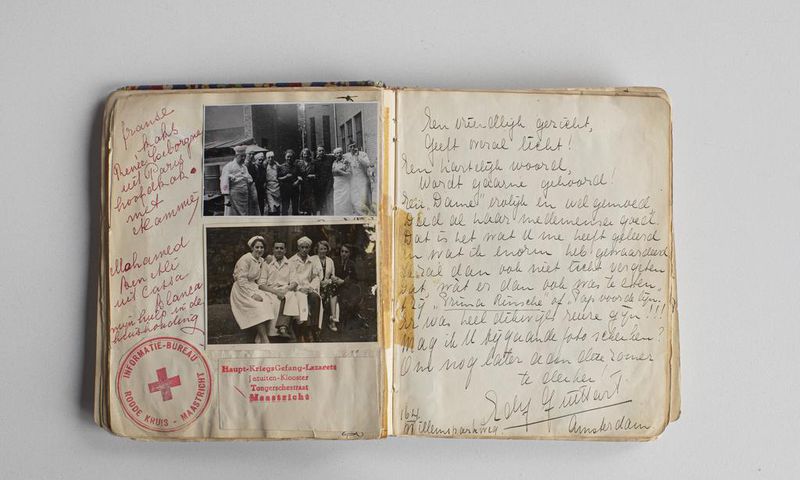 franse
koks
Renée
uit Parijs
hoofdkok
met
Mammie
Mohamed
Ben Ali
uit Cassa
Blanca
mijn hulp in de
huishouding
INFORMATIE-BUREAU
ROODE KRUIS - MAASTRICHT
Haupt-KriegsGefang-Lazarets
Jezuiten-Klooster
Tongerschestraat
Maastricht
Een vriendelijk gezicht,
Geeft overal licht!
Een hartelijk woord,
Wordt gaarne gehoord!
Een "Dame" vrolijk en wel gemoed
Deed al haar medemensen goed.
Dat is het wat U me heeft geleerd
En wat ik enorm heb gewaardeerd
zal dan ook niet licht vergeten
wat er dan ook was te eten.
"Prima Rünsche" of "Pap voor de lijn"
Er was heel dikwijls reuze gijn!!!
Mag ik U bijgaande foto schenken?
Om nog later aan deze zomer
te denken!
164
Willemsparkweg
Amsterdam